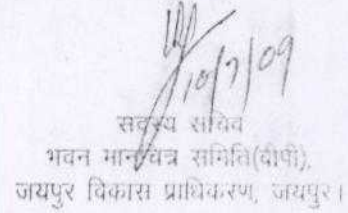 10/7/09
सदस्य सचिव
भवन मानचित्र समिति(बीपी),
जयपुर विकास प्राधिकरण, जयपुर।